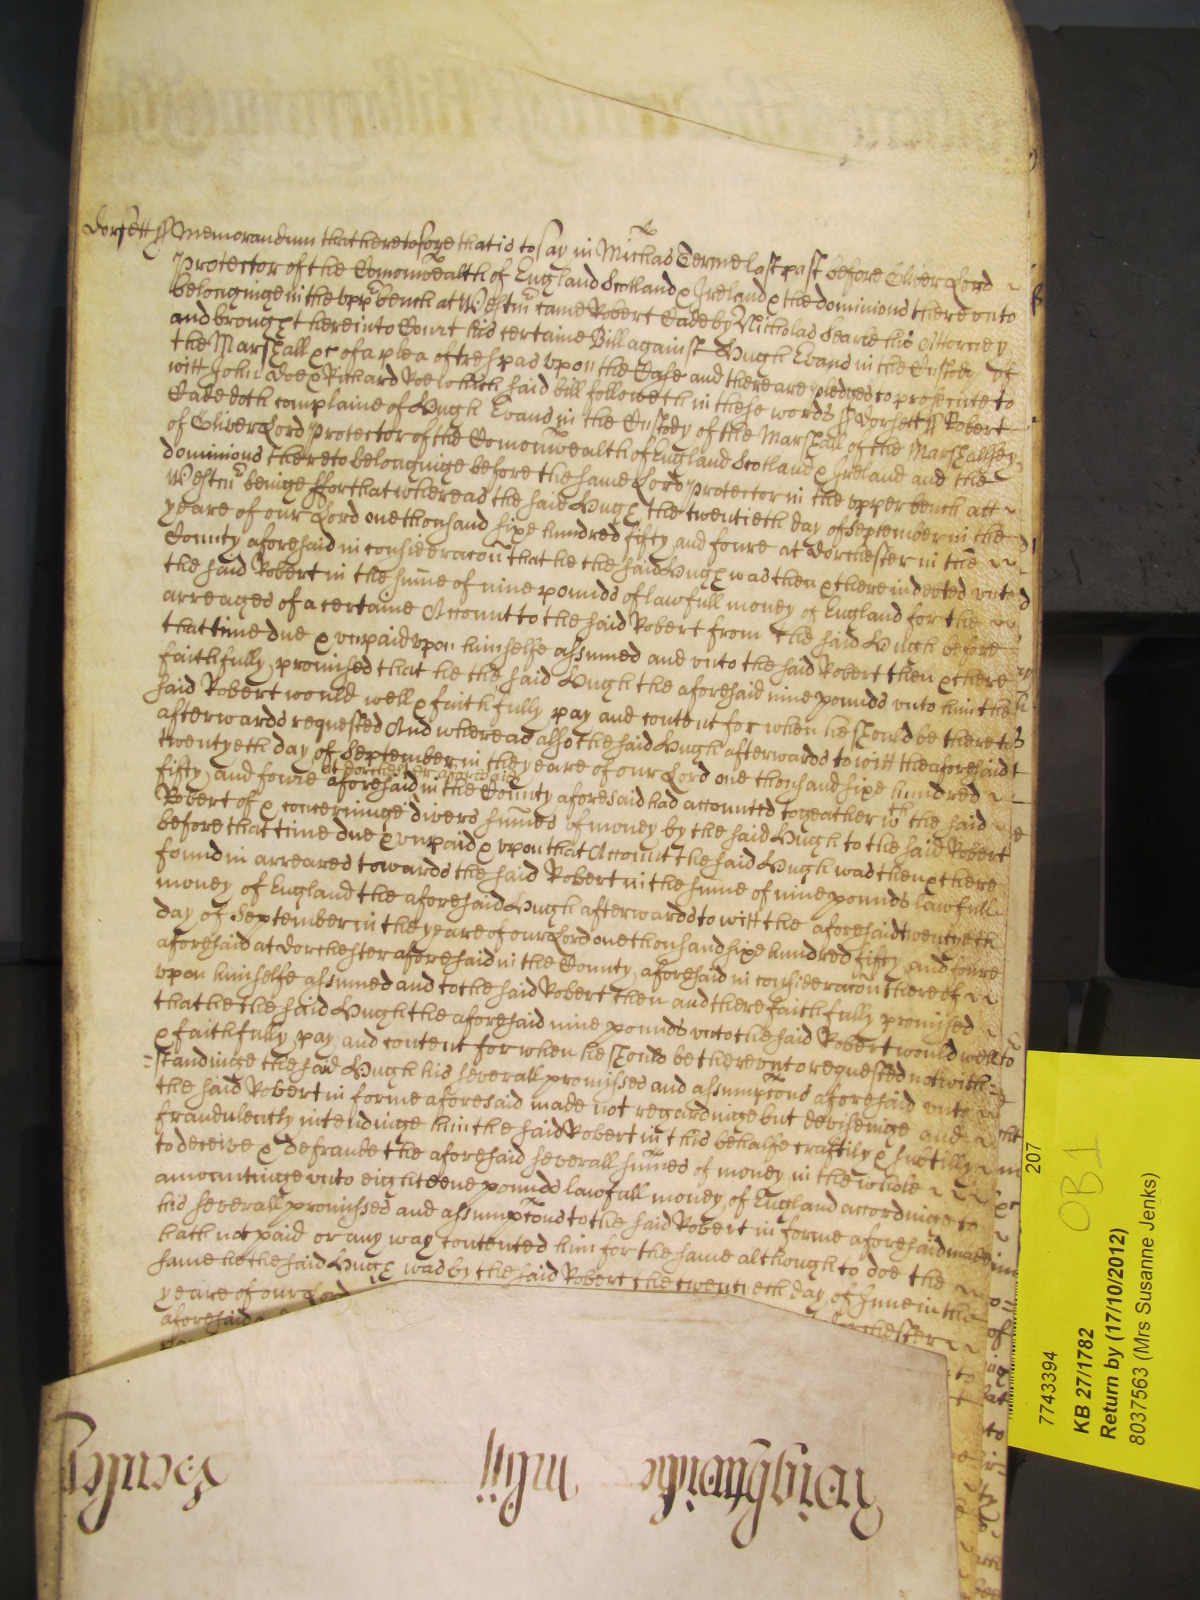 Dorsett ss Memorandum that heretofore that is to say in Michas Terme last past before Oliver Lord
Protector of the Comonwealth of England Scotland & Ireland & the dominions thereunto
belonginge in the upp bench at Westm came Robert Eade by Nicholas Searle his Attorney
and brought here into Court his certaine Bill against Hugh Evans in the Custody of
the Marshall &c of a plea of trespas upon the Case and there are pledges to prosecute to
witt John Doe & Richard Roe which said bill followeth in these words ss Dorsett ss Robert
Eade doth complaine of Hugh Evans in the Custody of the Marshall of the Marshallsey
of Oliver Lord Protector of the Comonwealth of England Scotland & Ireland and the
dominions thereto belonginge before the same Lord Protector in the upper bench att
Westm beinge ffor that whereas the said Hugh the twentieth day of September in the
yeare of our Lord one thousand sixe hundred fifty and foure at Dorchester in the
County aforesaid in consideracon that he the said Hugh was then & there indebted unto
the said Robert in the sume of nine pounds of lawfull money of England for the
arreages of a certaine Account to the said Robert from the said Hugh before
that time due & unpaid upon himselfe assumed and unto the said Robert then & there
faithfully promised that he the said Hugh the aforesaid nine pounds unto him the
said Robert would well & faithfully pay and content for when he should be thereto
afterwards requested And whereas also the said Hugh afterwards to witt the aforesaid
twentyeth day of September in the yeare of our Lord one thousand sixe hundred
fifty and foure at Dorchester aforesaid
aforesaid in the County aforesaid had accounted togeather wth the said
Robert of & concerninge divers sumes of money by the said Hugh to the said Robert
before that time due & unpaid & upon that Account the said Hugh was then & there
found in arreares towards the said Robert in the sume of nine pounds lawfull
money of England the aforesaid Hugh afterwards to witt the aforesaid twentyeth
day of September in the yeare of our Lord one thousand sixe hundred fifty and foure
aforesaid at Dorchester aforesaid in the County aforesaid in consideracon thereof
upon himselfe assumed and to the said Robert then and there faithfully promised
that he the said Hugh the aforesaid nine pounds unto the said Robert would well
& faithfully pay and content for when he should be thereunto requested notwith=
=standinge the said Hugh his severall promisses and assumptons aforesaid unto
the said Robert in forme aforesaid made not regardinge but deviseinge and
fraudulently intendinge him the said Robert in this behalfe craftily & subtilly
to deceive & defraude the aforesaid severall sumes of money in the whole
amountinge unto eighteene pounds lawfull money of England accordinge to
his severall promisses and assumptons to the said Robert in forme aforesaid made
hath not paid or any way contented him for the same although to doe the
same he the said Hugh was by the said Robert the twentyeth day of June in the
yeare of our Lord
aforesaid Dorchester
Wightwicke Mliij Henley
207
OB1
7743394
KB 27/1782
Return by (17/10/2012)
8037563 (Mrs Susanne Jenks)